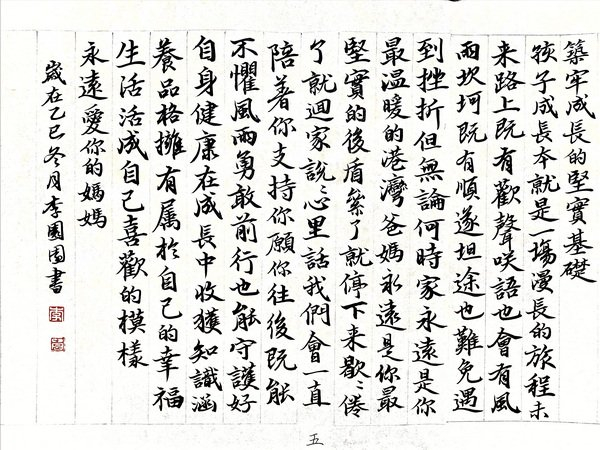 築牢成長的堅實基礎
孩子成長本就是一場漫長的旅程未
来路上既有歡聲咲語也會有風
雨坎坷既有順遂坦途也難免遇
到挫折但無論何時家永遠是你
最温暖的港灣爸媽永遠是你最
堅實的後盾纍了就停下来歇歇倦
了就迴家說說心里話我們會一直
陪著你支持你願你往後既能
不懼風雨勇敢前行也能守護好
自身健康在成長中收獲知識涵
養品格擁有属於自己的幸福
生活活成自己喜歡的模樣
永遠愛你的媽媽
歲在乙巳冬月李園園書
五